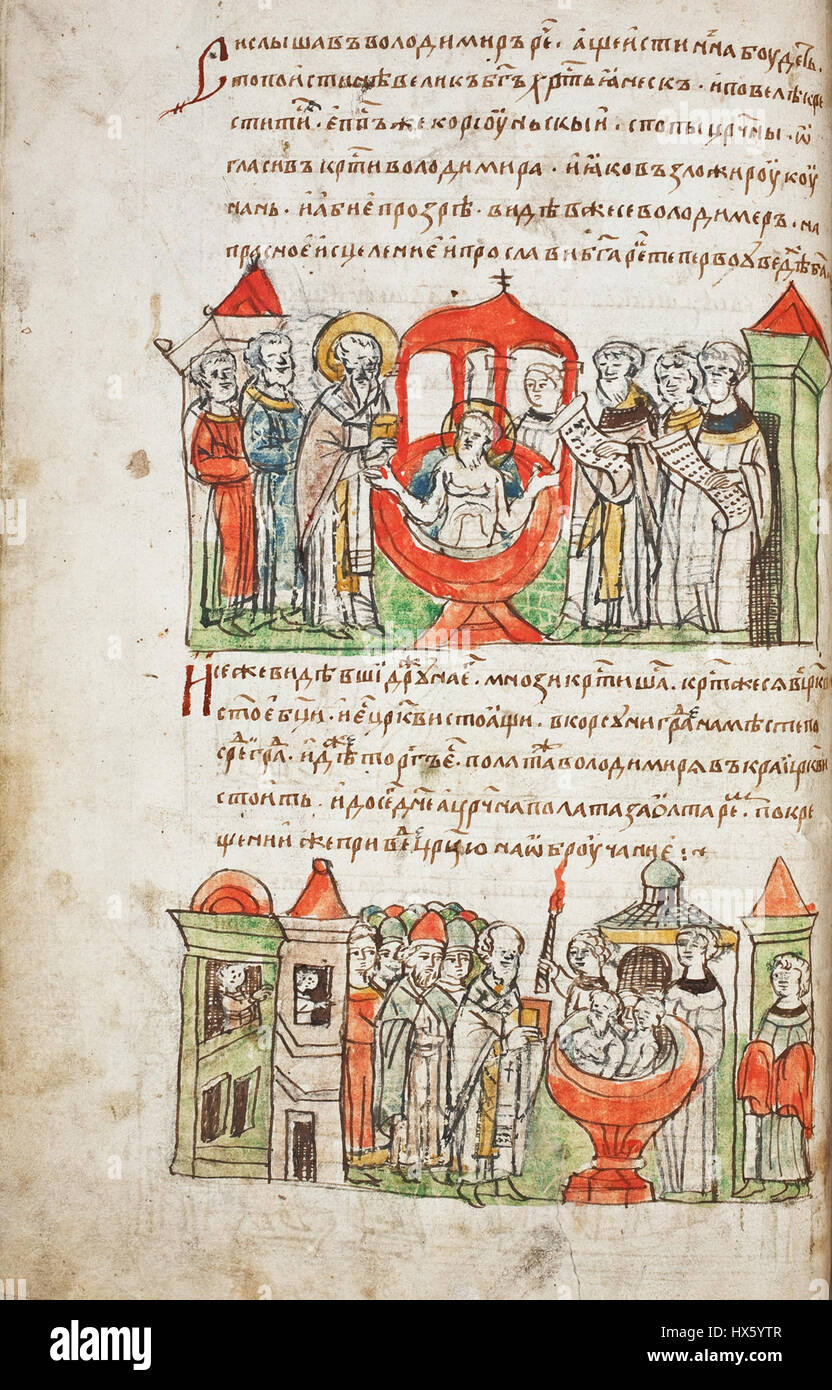 И слышавъ володимиръ рч҃е . аще истинна боудеть .
то поистинѣ великъ бг҃ъ хрс҃тьꙗнескъ . и повелѣ кре
стити . еп҃пъ же корсоуньскыи . с попы цр҃чны . ѡ
гласивъ кр҃ти володимира . и ꙗко възложи роукоу
нань . и абиѥ прозрѣ . видѣв же се володимеръ . на
прасноѥ исцелениѥ и прослави бг҃а ре҃
И се же видѣвши дружина ег҃ . мнози кр҃тишаⷭ . кр҃т же ся в цр҃кви
ст҃оѥ бц҃и . и ѥ цр҃кви стоꙗщи . в корсуни градѣ на мѣсте по
средѣ града . идѣже торгъ ѥ . полата же володимиря въ краи цр҃кви
стоить . и до сего дн҃е а цр҃цина полата за олтаремь . по кре
щении же приведе цр҃цю на ѡброучание :~
alamy
alamy stock photo
HX5YTR
www.alamy.com